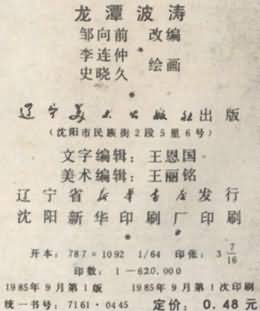 龙潭波涛
邹向前 改编
李连仲
史晓久 绘画
辽宁美术出版社出版
(沈阳市民族街2段5里6号)
文字编辑:王恩国
美术编辑:王丽铭
辽宁省新华书店发行
沈阳新华印刷厂印刷
开本:787×1092 1/64 印张:3 7/16
印数:1—620,000
1985年9月第1版 1985年9月第1次印刷
统一书号:7161·0445 定价:0.48元